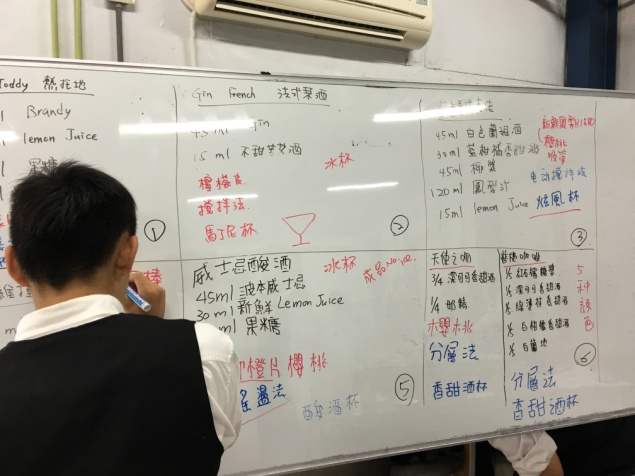 Toddy 熱托地
Brandy
lemon Juice
果糖
①
Gin French 法式琴酒
45 ml Gin
15 ml 不甜苦艾酒
冰杯
攪拌法
馬丁尼杯
②
45 ml 白色蘭姆酒
30 ml 藍柑橘香甜酒
45 ml 椰漿
120 ml 鳳梨汁
15 ml lemon Juice
櫻桃
炫風杯
③
棒
威士忌酸酒
冰杯
成品No.102
45ml 波本威士忌
30 ml 新鮮 Lemon Juice
ml 果糖
橙片 櫻桃
盪法
酸酒杯
⑤
天使之吻
3/4 深可可香甜酒
1/4 奶精
櫻桃
分層法
香甜酒杯
1/5 紅石榴糖漿
1/5 深可可香甜酒
1/5 綠薄荷香甜酒
1/5 白柑橘香甜酒
1/5 白蘭地
5
種
顏
色
⑥
分層法
香甜酒杯